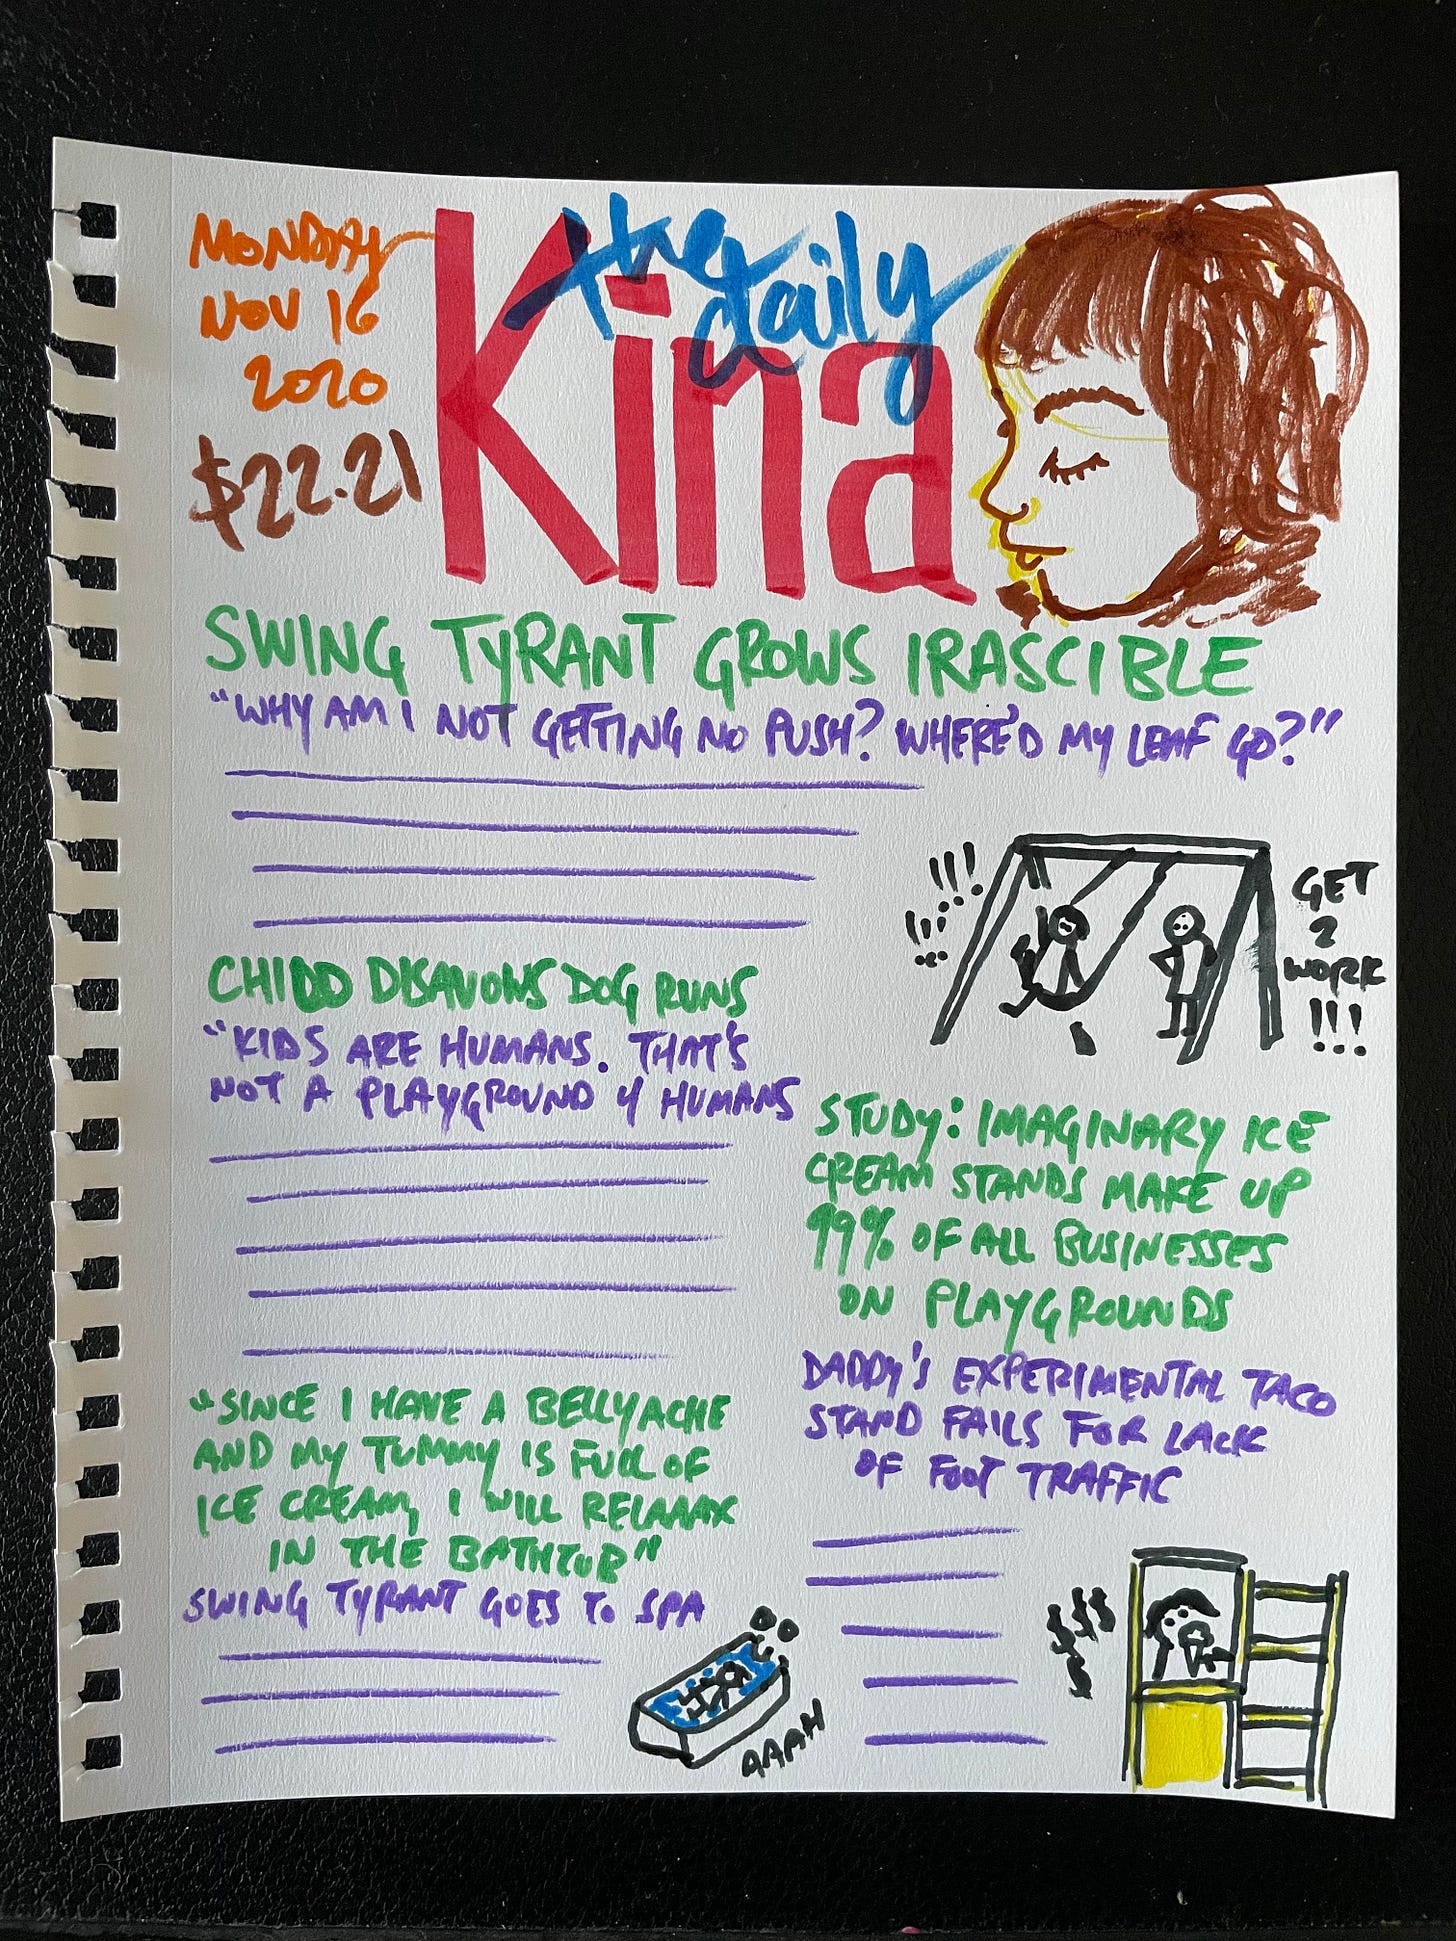 MONDAY
NOV 16
2020
$22.21
the daily
Kina
SWING TYRANT GROWS IRASCIBLE
"WHY AM I NOT GETTING NO PUSH? WHERE'D MY LEAF GO?"
!!!
!!!...
GET
2
WORK
!!!
CHILD DISAVOWS DOG RUNS
"KIDS ARE HUMANS. THAT'S
NOT A PLAYGROUND 4 HUMANS
STUDY: IMAGINARY ICE
CREAM STANDS MAKE UP
99% OF ALL BUSINESSES
ON PLAYGROUNDS
DADDY'S EXPERIMENTAL TACO
STAND FAILS FOR LACK
OF FOOT TRAFFIC
"SINCE I HAVE A BELLYACHE
AND MY TUMMY IS FULL OF
ICE CREAM, I WILL RELAAAX
IN THE BATHTUB"
SWING TYRANT GOES TO SPA
AAAH